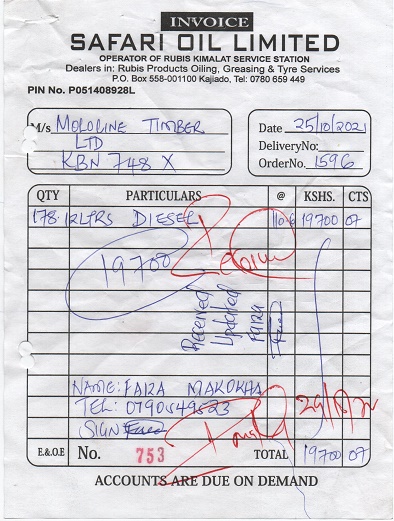 INVOICE
SAFARI OIL LIMITED
OPERATOR OF RUBIS KIMALAT SERVICE STATION
Dealers in: Rubis Products Oiling, Greasing & Tyre Services
P.O. Box 558-001100 Kajiado, Tel: 0780 659 449
PIN No. P051408928L
M/s MOLOLINE TIMBER
LTD
KBN 748 X
Date 25/10/2021
DeliveryNo:
OrderNo. 1596
QTY PARTICULARS @ KSHS. CTS
178.1 LTRS DIESEL 110.6 19700 07
19700
Received
Updated
FAIZA
NAME: FAIZA MAKOKHA
TEL: 0790549523
SIGN
E.&O.E No. 753 TOTAL 19700 07
ACCOUNTS ARE DUE ON DEMAND